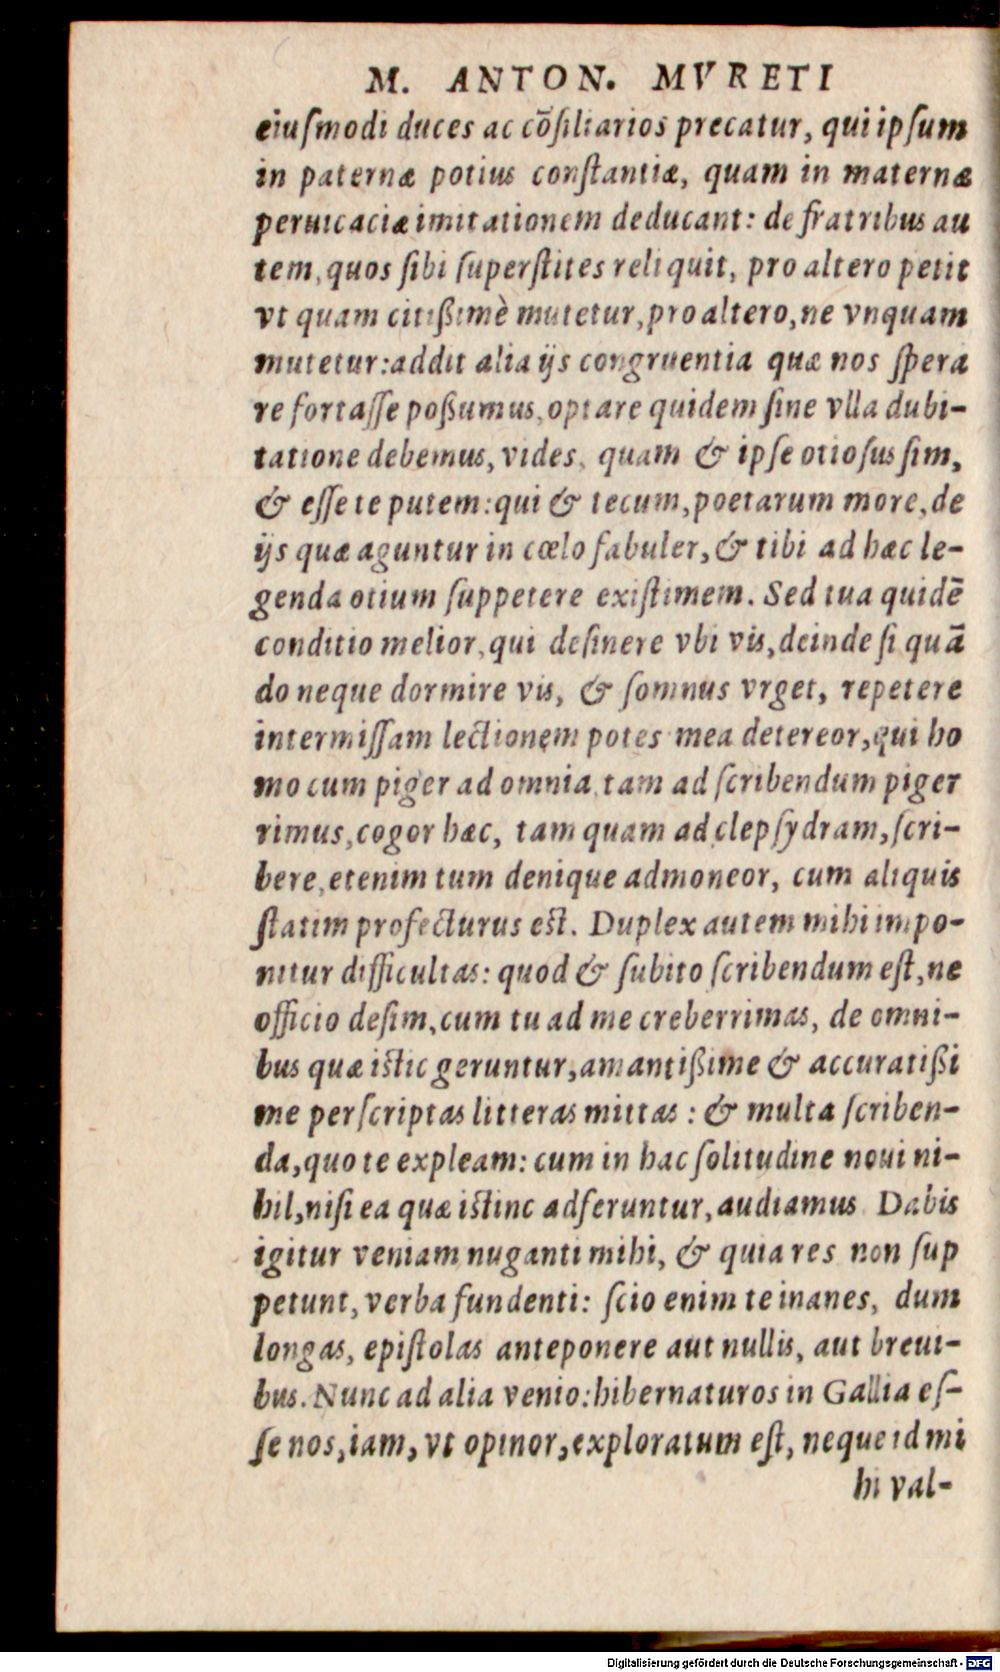 M. ANTON. MVRETI
eiuſmodi duces ac cõſiliarios precatur, qui ipſum
in paternæ potius conſtantiæ, quam in maternæ
peruicaciæ imitationem deducant: de fratribus au
tem, quos ſibi ſuperſtites reliquit, pro altero petit
vt quam citißimè mutetur, pro altero, ne vnquam
mutetur: addit alia ijs congruentia quæ nos ſpera
re fortaſſe poßumus, optare quidem ſine vlla dubi-
tatione debemus, vides, quam & ipſe otioſus ſim,
& eſſe te putem: qui & tecum, poetarum more, de
ijs quæ aguntur in cœlo fabuler, & tibi ad hæc le-
genda otium ſuppetere exiſtimem. Sed tua quidẽ
conditio melior, qui deſinere vbi vis, deinde ſi quã
do neque dormire vis, & ſomnus vrget, repetere
intermiſſam lectionem potes mea detereor, qui ho
mo cum piger ad omnia tam ad ſcribendum piger
rimus, cogor hæc, tam quam ad clepſydram, ſcri-
bere, etenim tum denique admoneor, cum aliquis
ſtatim profecturus eſt. Duplex autem mihi impo-
nitur difficultas: quod & ſubito ſcribendum eſt, ne
officio deſim, cum tu ad me creberrimas, de omni-
bus quæ iſtic geruntur, amantißime & accuratißi
me perſcriptas litteras mittas: & multa ſcriben-
da, quo te expleam: cum in hac ſolitudine noui ni-
hil, niſi ea quæ iſtinc adferuntur, audiamus Dabis
igitur veniam nuganti mihi, & quia res non ſup
petunt, verba fundenti: ſcio enim te inanes, dum
longas, epiſtolas anteponere aut nullis, aut breui-
bus. Nunc ad alia venio: hibernaturos in Gallia eſ-
ſe nos, iam, vt opinor, exploratum eſt, neque id mi
hi val-
Digitalisierung gefördert durch die Deutsche Forschungsgemeinschaft - DFG